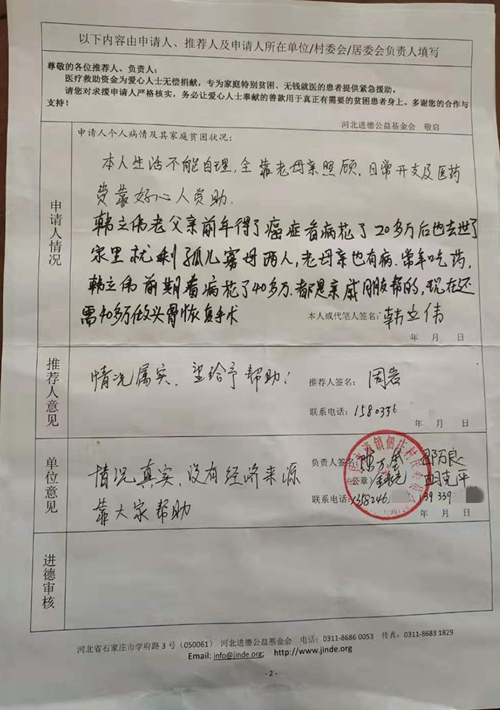 以下内容由申请人、推荐人及申请人所在单位/村委会/居委会负责人填写
尊敬的各位推荐人、负责人：
医疗救助资金为爱心人士无偿捐献，专为家庭特别贫困、无钱就医的患者提供紧急援助。
请您对求援申请人严格核实，务必让爱心人士奉献的善款用于真正有需要的贫困患者身上，多谢您的合作与
支持！
河北进德公益基金会 敬启
申请人情况
申请人个人病情及其家庭贫困状况：
本人生活不能自理，全靠老母亲照顾，日常开支及医药
费靠好心人资助．
韩立伟老父亲前年得了癌症看病花了20多万后也去世了
家里就剩孤儿寡母两人，老母亲也有病．常年吃药，
韩立伟前期看病花了40多万．都是亲戚朋友帮的，现在还
需40多万做头骨恢复手术
本人或代笔人签名：韩立伟
年 月 日
推荐人意见
情况属实．望给予帮助！
推荐人签名：周岩
联系电话：1580336
年 月 日
单位意见
情况真实．没有经济来源
靠大家帮助
负责人签名：
（公章）
联系电话：158246
139 339
年 月 日
进德审核
河北省石家庄市学府路 3 号（050061）河北进德公益基金会 电话：0311-8686 0053 传真：0311-8683 1829
Email: info@jinde.org; http://www.jinde.org
- 2 -